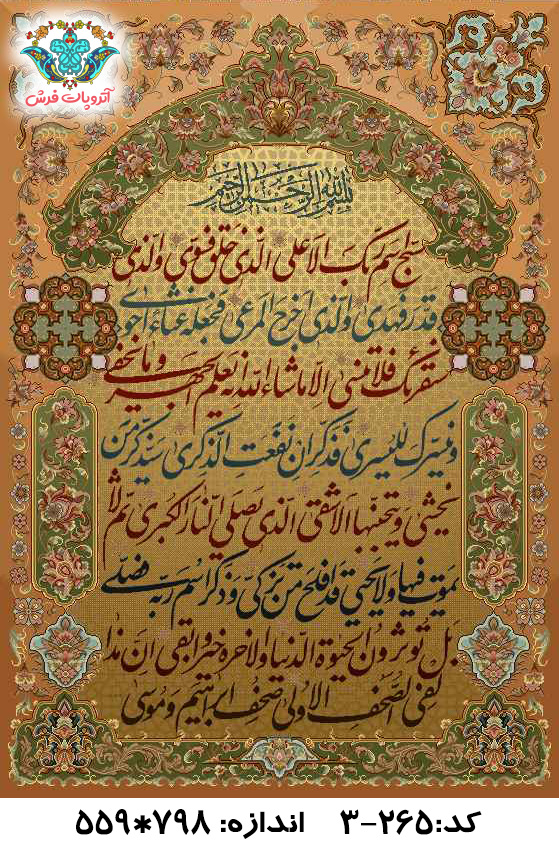 آتروپات فرش
بسم الله الرحمن الرحیم
سبح اسم ربک الاعلی الذی خلق فسوی والذی
قدر فهدی والذی اخرج المرعی فجعله غثاء احوی
سنقرئک فلا تنسی الا ماشاء الله انه یعلم الجهر وما یخفی
ونیسرک للیسری فذکر ان نفعت الذکری سیذکر من
یخشی ویتجنبها الاشقی الذی یصلی النار الکبری ثم لا
یموت فیها ولا یحیی قد افلح من تزکی وذکر اسم ربه فصلی
بل تؤثرون الحیوة الدنیا والاخرة خیر وابقی ان هذا
لفی الصحف الاولی صحف ابراهیم وموسی
کد:۲۶۵-۳ اندازه: ۷۹۸*۵۵۹